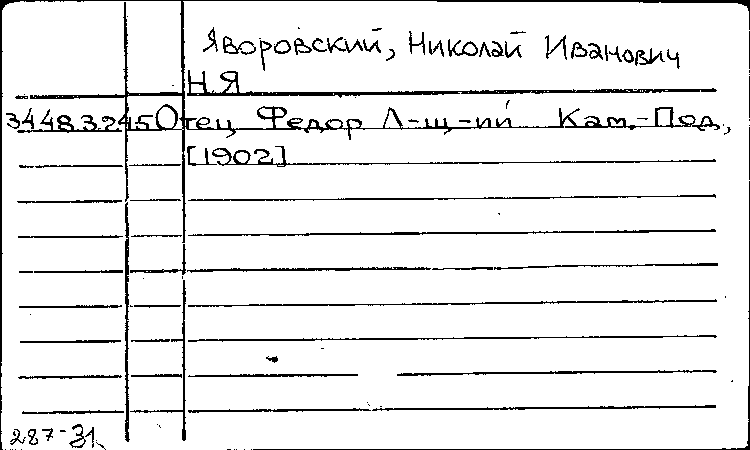 Яворовский, Николай Иванович
Н.Я
34483245 Отец Федор Л-щ-ий Кам.-Под.,
[1902]
287-31